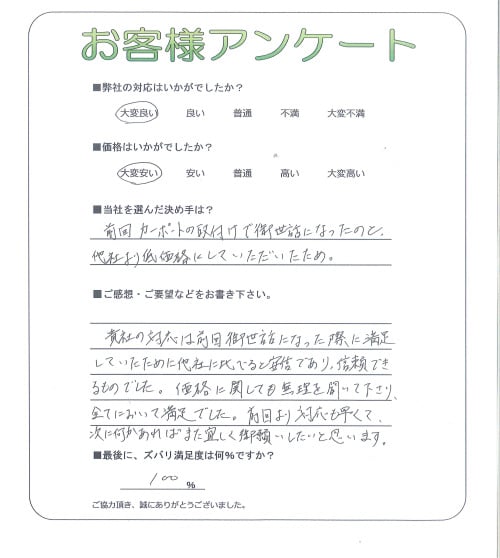 お客様アンケート
■弊社の対応はいかがでしたか?
大変良い 良い 普通 不満 大変不満
■価格はいかがでしたか?
大変安い 安い 普通 高い 大変高い
■当社を選んだ決め手は?
前回カーポートの取付けで御世話になったのと、
他社より低価格にしていただいたため。
■ご感想・ご要望などをお書き下さい。
貴社の対応は前回御世話になった際に満足
していたために他社に比べると安信であり、信頼でき
るものでした。価格に関しても無理を聞いて下さり、
全てにおいて満足でした。前回より対応も早くて、
次に何かあればまた宜しく御願いしたいと思います。
■最後に、ズバリ満足度は何%ですか?
100 %
ご協力頂き、誠にありがとうございました。